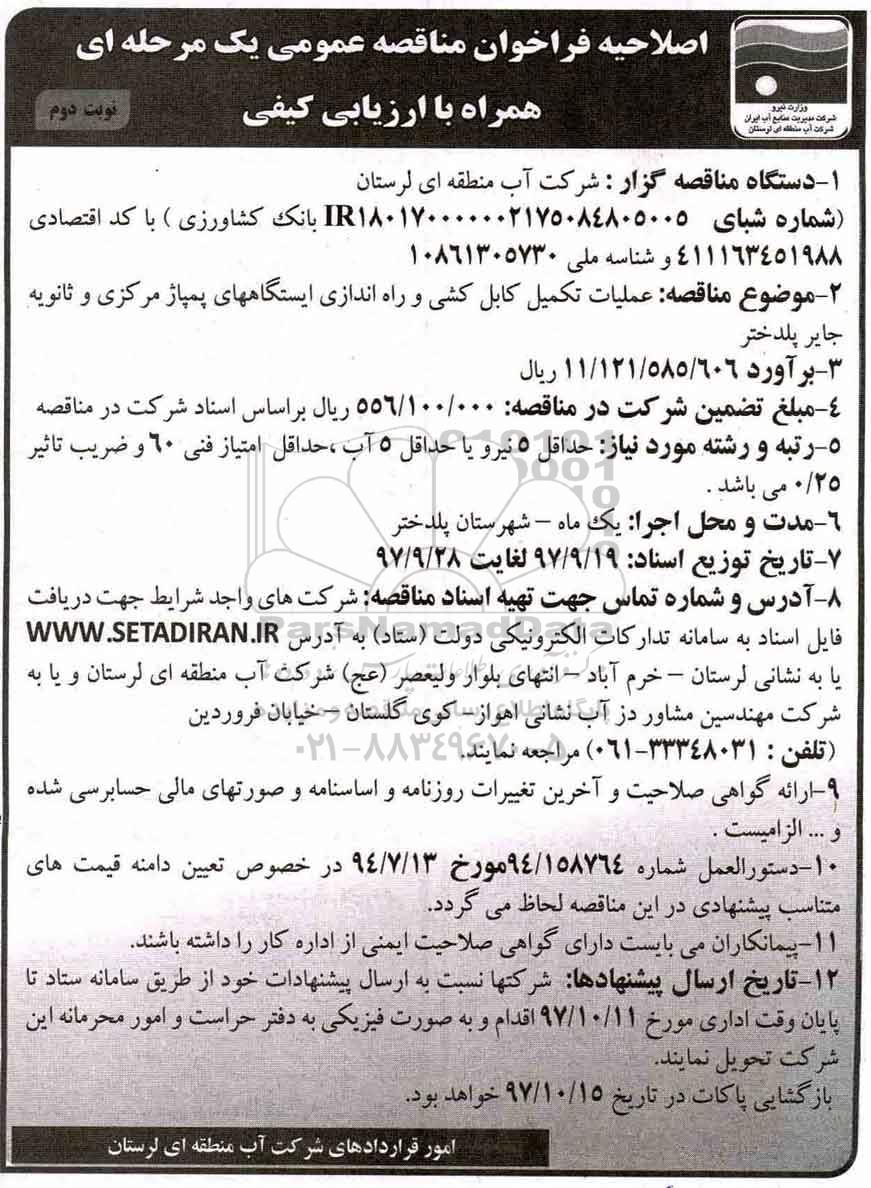 اصلاحیه فراخوان مناقصه عمومی یک مرحله ای
همراه با ارزیابی کیفی
نوبت دوم
وزارت نیرو
شرکت مدیریت منابع آب ایران
شرکت آب منطقه ای لرستان
۱-دستگاه مناقصه گزار : شرکت آب منطقه ای لرستان
(شماره شبای IR۱۸۰۱۷۰۰۰۰۰۰۰۲۱۷۵۰۸۴۸۰۵۰۰۵ بانک کشاورزی ) با کد اقتصادی
۴۱۱۱۶۳۴۵۱۹۸۸ و شناسه ملی ۱۰۸۶۱۳۰۵۷۳۰
۲-موضوع مناقصه: عملیات تکمیل کابل کشی و راه اندازی ایستگاههای پمپاژ مرکزی و ثانویه
جایر پلدختر
۳-برآورد ۱۱/۱۲۱/۵۸۵/۶۰۶ ریال
۴-مبلغ تضمین شرکت در مناقصه: ۵۵۶/۱۰۰/۰۰۰ ریال براساس اسناد شرکت در مناقصه
۵-رتبه و رشته مورد نیاز: حداقل ۵ نیرو یا حداقل ۵ آب ،حداقل امتیاز فنی ۶۰ و ضریب تاثیر
۰/۲۵ می باشد .
۶-مدت و محل اجرا: یک ماه – شهرستان پلدختر
۷-تاریخ توزیع اسناد: ۹۷/۹/۱۹ لغایت ۹۷/۹/۲۸
۸-آدرس و شماره تماس جهت تهیه اسناد مناقصه: شرکت های واجد شرایط جهت دریافت
فایل اسناد به سامانه تدارکات الکترونیکی دولت (ستاد) به آدرس WWW.SETADIRAN.IR
یا به نشانی لرستان – خرم آباد – انتهای بلوار ولیعصر (عج) شرکت آب منطقه ای لرستان و یا به
شرکت مهندسین مشاور دز آب نشانی اهواز– کوی گلستان – خیابان فروردین
(تلفن : ۳۳۳۴۸۰۳۱-۰۶۱) مراجعه نمایند.
۹-ارائه گواهی صلاحیت و آخرین تغییرات روزنامه و اساسنامه و صورتهای مالی حسابرسی شده
و ... الزامیست .
۱۰-دستورالعمل شماره ۹۴/۱۵۸۷۶۴مورخ ۹۴/۷/۱۳ در خصوص تعیین دامنه قیمت های
متناسب پیشنهادی در این مناقصه لحاظ می گردد.
۱۱-پیمانکاران می بایست دارای گواهی صلاحیت ایمنی از اداره کار را داشته باشند.
۱۲-تاریخ ارسال پیشنهادها: شرکتها نسبت به ارسال پیشنهادات خود از طریق سامانه ستاد تا
پایان وقت اداری مورخ ۹۷/۱۰/۱۱ اقدام و به صورت فیزیکی به دفتر حراست و امور محرمانه این
شرکت تحویل نمایند.
بازگشایی پاکات در تاریخ ۹۷/۱۰/۱۵ خواهد بود.
امور قراردادهای شرکت آب منطقه ای لرستان
ParsNamadData
۰۲۱-۸۸۳۴۹۶۷۰-۵